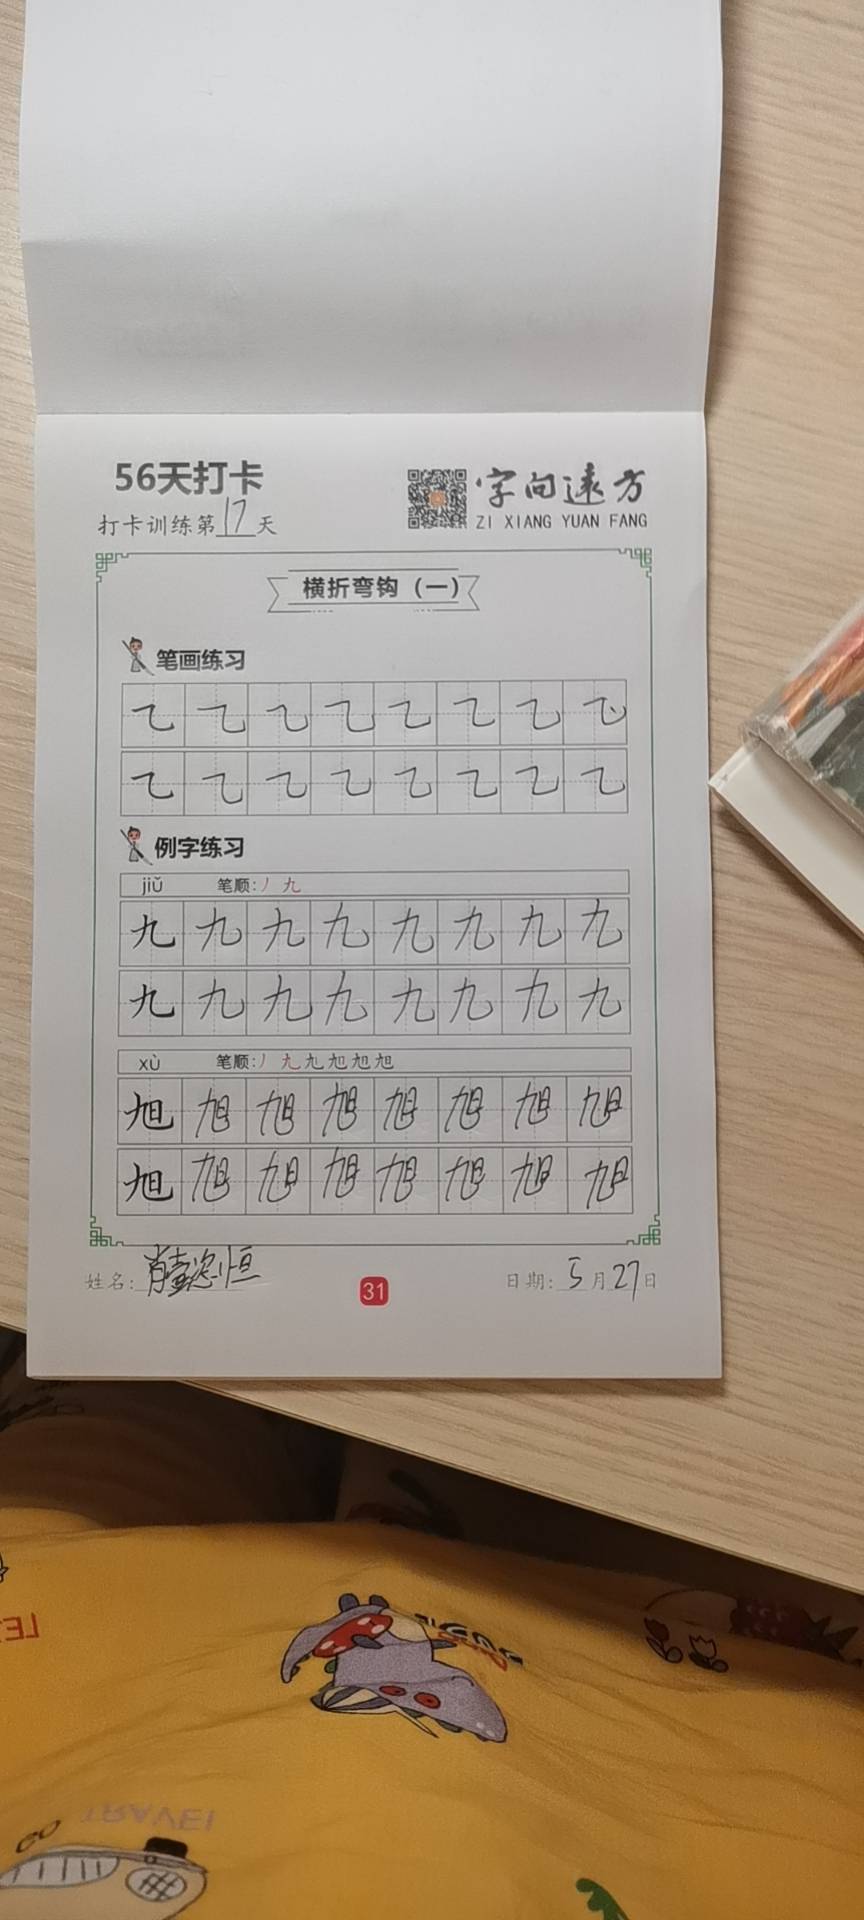 56天打卡
字向远方
打卡训练第17天
ZI XIANG YUAN FANG
横折弯钩（一）
笔画练习
㇈ ㇈ ㇈ ㇈ ㇈ ㇈ ㇈ ㇈
㇈ ㇈ ㇈ ㇈ ㇈ ㇈ ㇈ ㇈
例字练习
jiǔ 笔顺:丿 九
九 九 九 九 九 九 九 九
九 九 九 九 九 九 九 九
xù 笔顺:丿 九 九 旭 旭 旭
旭 旭 旭 旭 旭 旭 旭 旭
旭 旭 旭 旭 旭 旭 旭 旭
姓名: 肖 恒
31
日期: 5月27日
TRAVEL
GO